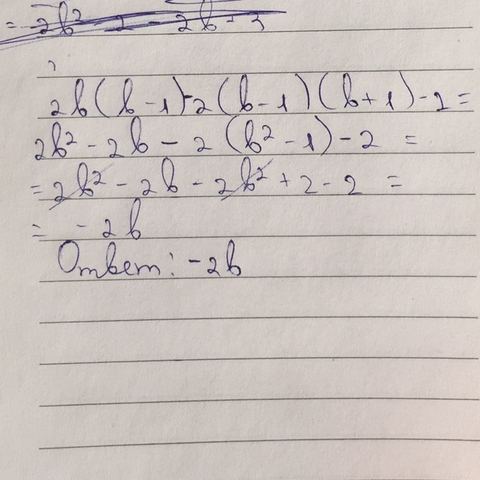 = 2b² 2 - 2b - 3
2b(b-1)-2(b-1)(b+1)-2=
2b²-2b-2(b²-1)-2 =
=2b²-2b-2b²+2-2 =
= -2b
Ответ: -2b